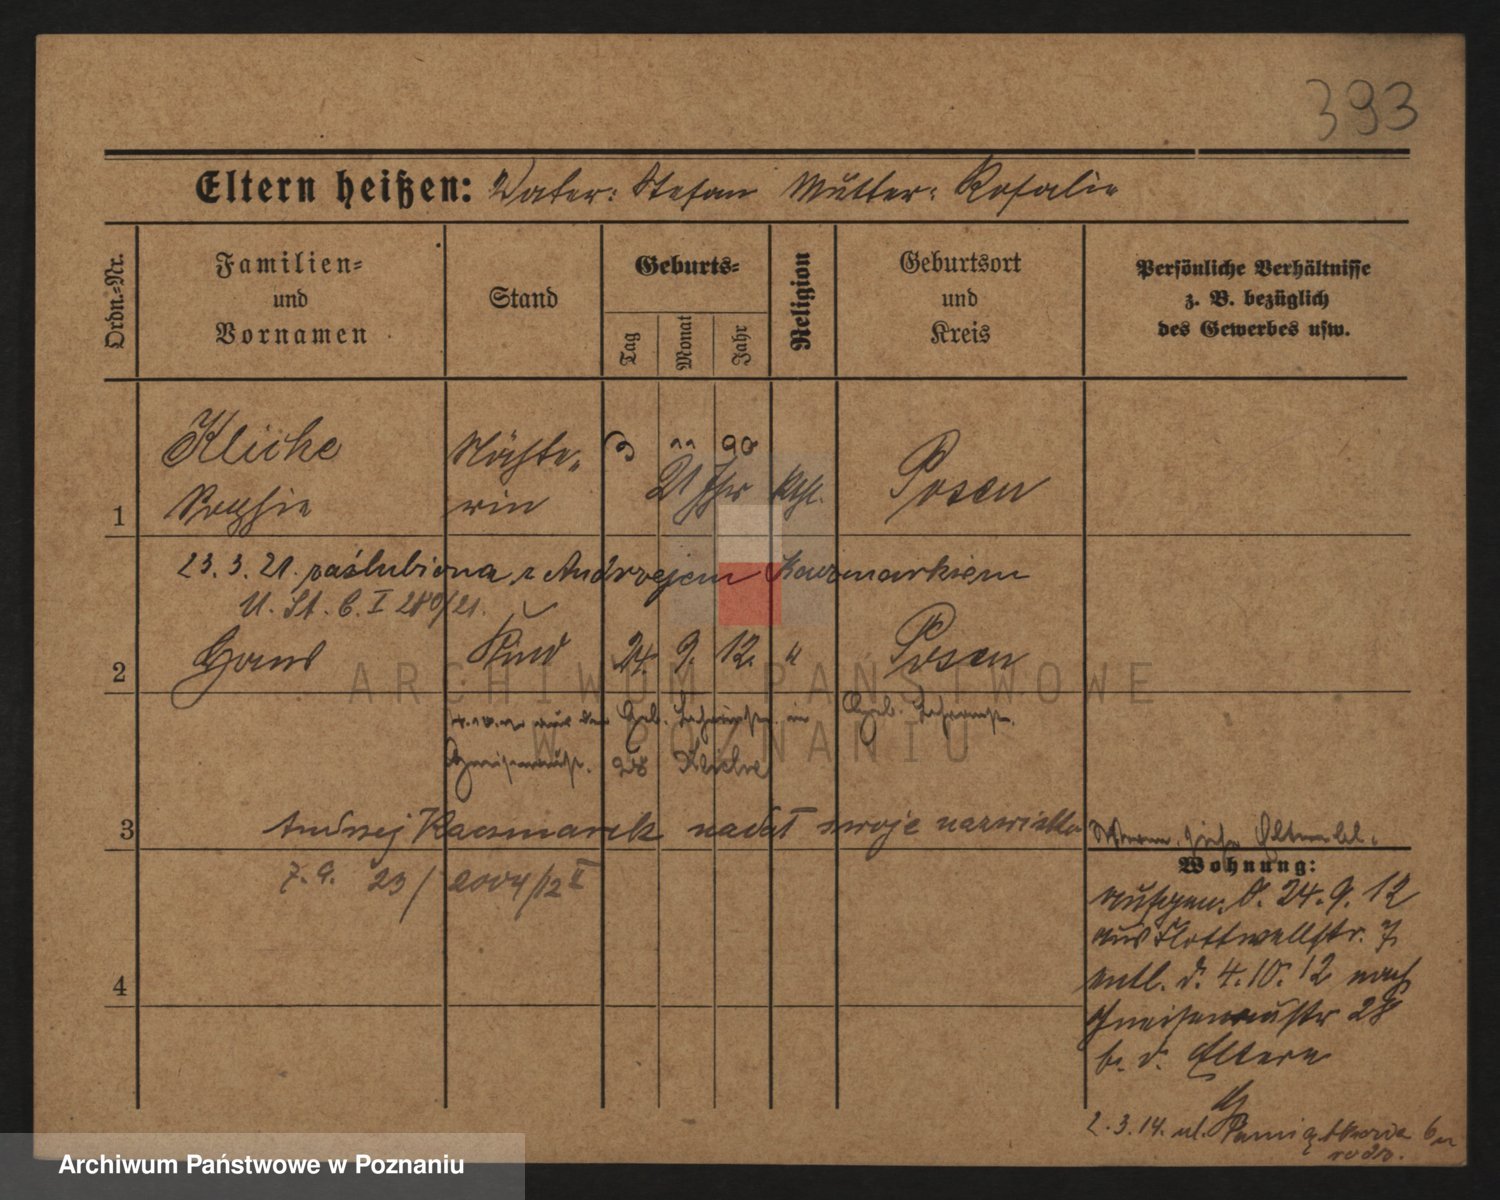 393
Eltern heißen: Vater: Stefan Mutter: Rosalie
Ordn.-Nr.
Familien- und Vornamen
Stand
Geburts-
Tag
Monat
Jahr
Religion
Geburtsort und Kreis
Persönliche Verhältnisse z. B. bezüglich des Gewerbes usw.
Kliche
Sophie
90
21 Jhr
kth.
Posen
1
23. 3. 21. zaślubiona z Andrzejem Kaczmarkiem
U. St. C. I 280/21.
2
Hans
Kind
24. 9. 12.
"
Posen
28 Kliche
3
Andrzej Kaczmarek nadał swoje nazwisko
23/2004/12 II
Wohnung:
aufgen. d. 24. 9. 12
aus Flottwellstr. 7
entl. d. 4. 10. 12 nach
Gneisenaustr 28
b. d. Eltern
4
2. 3. 14. ul. Pamiątkowa 6
ARCHIWUM PAŃSTWOWE
W POZNANIU
Archiwum Państwowe w Poznaniu